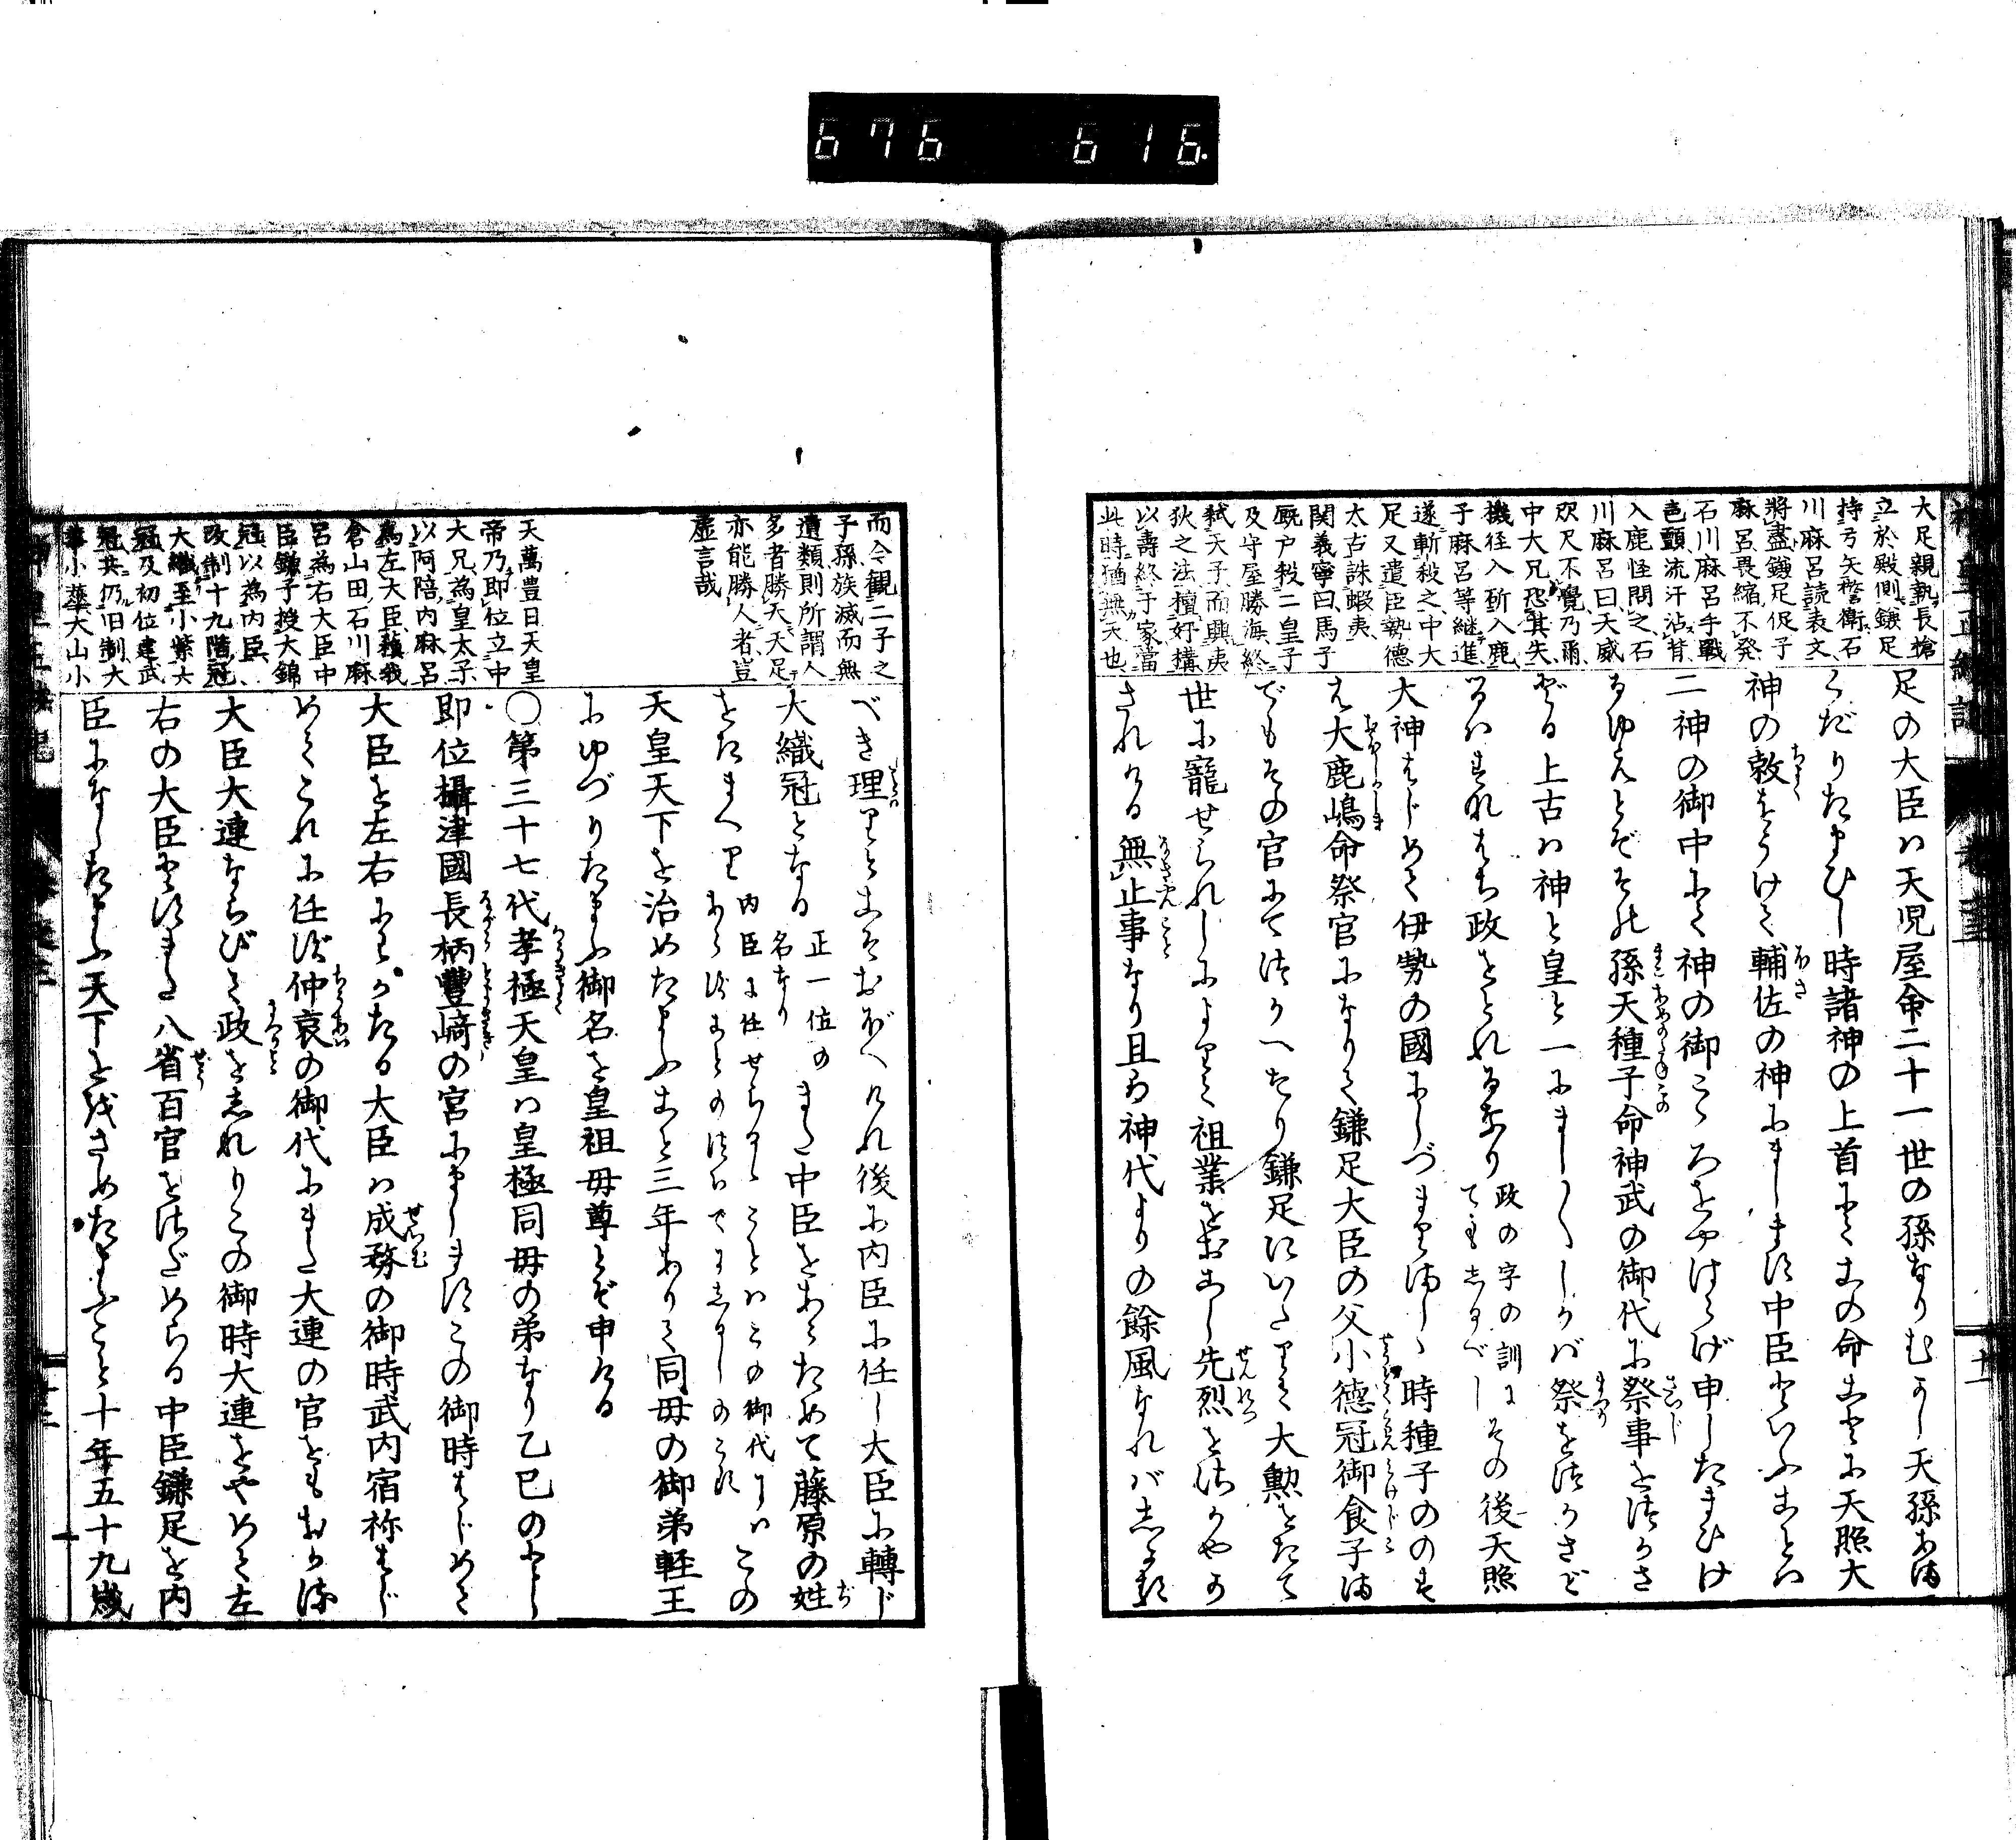 676 616.
大兄親執長槍
立於殿側鎌足
持弓矢警衛石
川麻呂読表文
將盡鎌足促子
麻呂畏縮不發
石川麻呂手戰
色顫流汗沾背
入鹿怪問之石
川麻呂曰天威
咫尺不覺乃爾
中大兄恐其失
機径入斫入鹿
子麻呂等継進
遂斬殺之中大
足又遣臣勢德
太古誅蝦夷
関義寧曰馬子
厩戸殺二皇子
及守屋勝海終
弑天子而興夷
狄之法擅奸構
以壽終于家當
此時猶無天也
足の大臣ハ天児屋命二十一世の孫なりむかし天孫あま
くだりたまひし時諸神の上首にてこの命ことに天照大
神の敕をうけて輔佐の神にまします中臣といふことハ
二神の御中にて神の御こゝろをやはらげ申したまひけ
るゆえとぞその孫天種子命神武の御代に祭事をつかさ
どる上古ハ神と皇と一にましましゝかバ祭をつかさど
るハすなはち政をとれるなり政の字の訓にてもしるべしその後天照
大神はじめて伊勢の國にしづまりましゝ時種子ののす
え大鹿嶋命祭官になりて鎌足大臣の父小德冠御食子ま
でもその官にてつかへたり鎌足にいたりて大勲をたて
世に寵せられしによりて祖業をおこし先烈をさかやか
されける無止事なり且ハ神代よりの餘風なれバしかる
而令観二子之
子孫族滅而無
遺類則所謂人
多者勝天天足
亦能勝人者豈
虚言哉
天萬豊日天皇
帝乃即位立中
大兄為皇太子
以阿陪内麻呂
為左大臣蘓我
倉山田石川麻
呂為右大臣中
臣鎌子授大錦
冠以為内臣
改制十九階冠
大織至小紫六
冠及初位建武
冠共仍旧制大
華小華大山小
べき理りとこそおぼへけれ後に内臣に任し大臣に轉じ
大織冠となる正一位の名なりまた中臣をあらためて藤原の姓
をたまへり内臣に任せらるゝことハこの御代にハあらずことのついでにしるしのこす この
天皇天下を治めたまふこと三年ありて同母の御弟軽王
にゆづりたまふ御名を皇祖母尊とぞ申ける
〇第三十七代孝極天皇ハ皇極同母の弟なり乙巳のとし
即位攝津國長柄豐﨑の宮にましますこの御時はじめて
大臣を左右にわかたる大臣ハ成務の御時武内宿祢はじ
めてこれに任ず仲哀の御代にまた大連の官をもおかる
大臣大連ならびて政をしれりこの御時大連をやめて左
右の大臣とすまた八省百官をさだめらる中臣鎌足を内
臣になしたまふ天下を戝さめたまふこと十年五十九歳